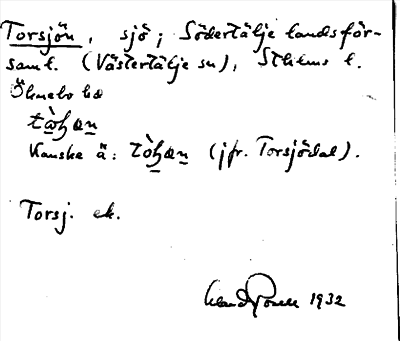 Torsjön, sjö; Södertälje landsför-
saml. (Västertälje sn), Sthlms l.
Öknebo hd
Kanske ä: (jfr. Torsjödal).
Torsj. ek.
1932